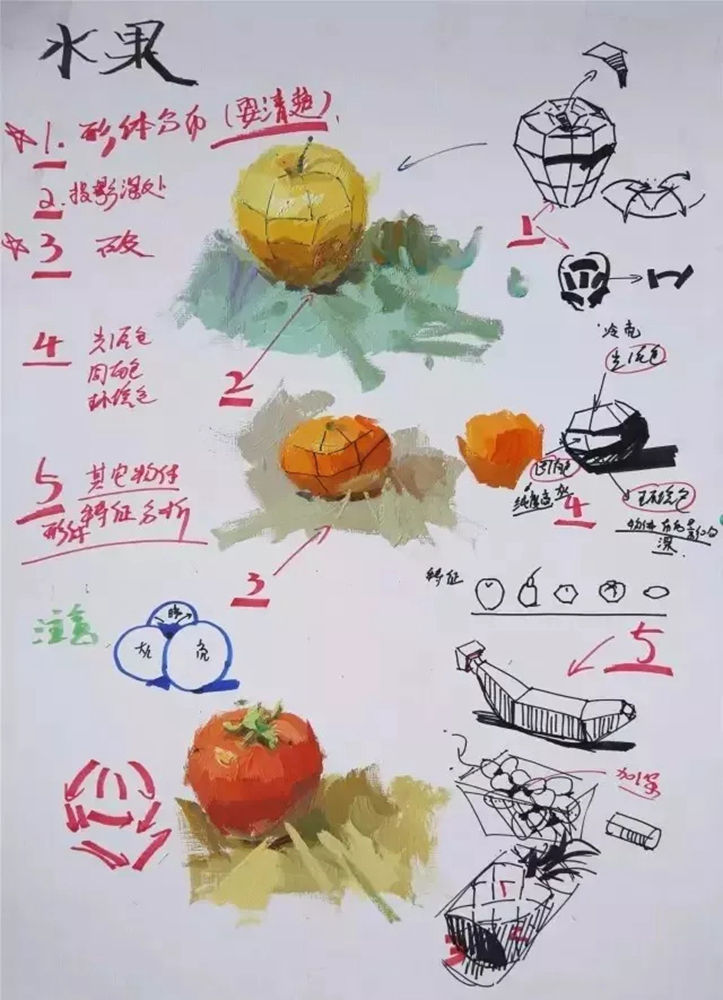 水果
☆1. 形体分布(要清楚).
2. 投影深处
☆3 破
4 光源色
固有色
环境色
5 其它物体
形体特征分析
注意
1
2
3
4
5
冷亮
光源色
固有色
环境色
特征
加深
1
2
3